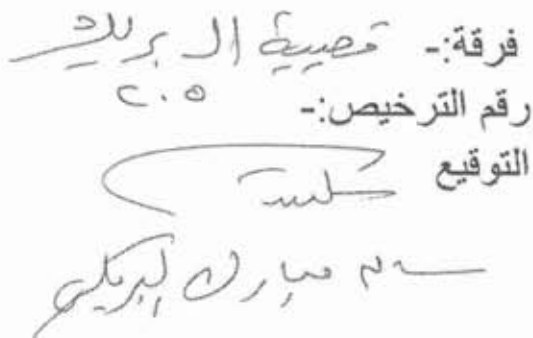 فرقة:- قصيبة ال بريك
رقم الترخيص:- ٢٠٥
التوقيع
سالم مبارك البريكي